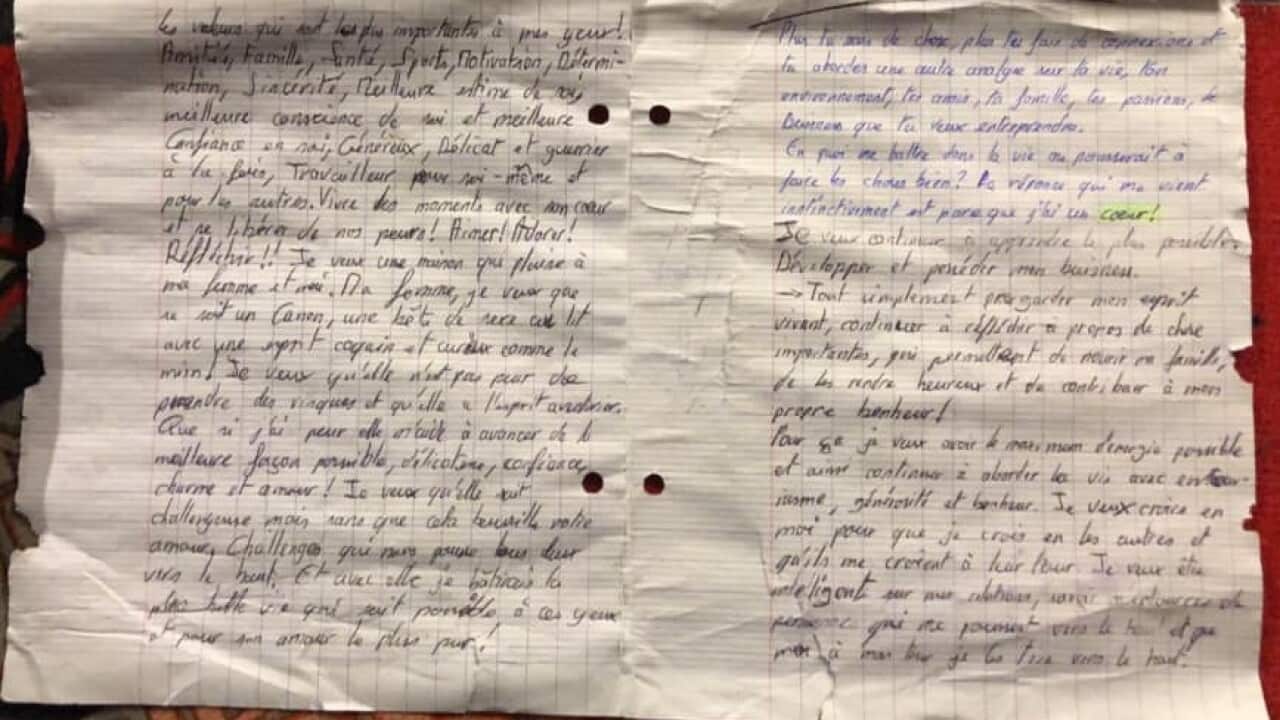 Les valeurs qui sont les plus importantes à mes yeux!
Amitiés, Famille, Santé, Sports, Motivation, Détermi-
nation, Sincérité, Meilleure estime de soi,
meilleure conscience de soi et meilleure
Confiance en soi, Généreux, Délicat et guerrier
à la fois, Travailleur pour soi-même et
pour les autres. Vivre des moments avec son coeur
et se libérer de nos peurs! Aimer! Adorer!
Réfléchir!! Je veux une maison qui plaise à
ma femme et moi. Ma femme, je veux que
ce soit un Canon, une bête de sexe au lit
avec une esprit coquin et curieux comme le
mien! Je veux qu'elle n'est pas peur de
prendre des risques et qu'elle a l'esprit aventurier.
Que si j'ai peur elle m'aide à avancer de la
meilleure façon possible, délicatesse, confiance,
charme et amour! Je veux qu'elle soit
challengeuse mais sans que cela notre
amour, Challenges qui nous pousse tous deux
vers le haut. Et avec elle je bâtirais la
plus belle vie qui soit possible à ces yeux
et pour son amour le plus pur!
Plus tu sais de chose, plus tu fais de connexions et
tu abordes une autre analyse sur ta vie, ton
environnement, tes amis, ta famille, tes passions, le
Business que tu veux entreprendre.
En quoi me battre dans la vie me pousserait à
faire les choses bien? La réponse qui me vient
instinctivement est parce que j'ai un coeur!
Je veux continuer à apprendre le plus possible,
Développer et posséder mon buisness.
→ Tout simplement pour garder mon esprit
vivant, continuer à réfléchir à propos de chose
importantes, qui permettent de nourir ma famille,
de les rendre heureux et de contribuer à mon
propre bonheur!
Pour ça je veux avoir le maximum d'énergie possible
et ainsi continuer à aborder la vie avec enthou-
siasme, générosité et bonheur. Je veux croire en
moi pour que je crois en les autres et
qu'ils me croient à leur tour. Je veux être
intelligent sur mes relations, savoir m'entourer de
personne qui me poussent vers le haut et que
moi à mon tour je les tire vers le haut.